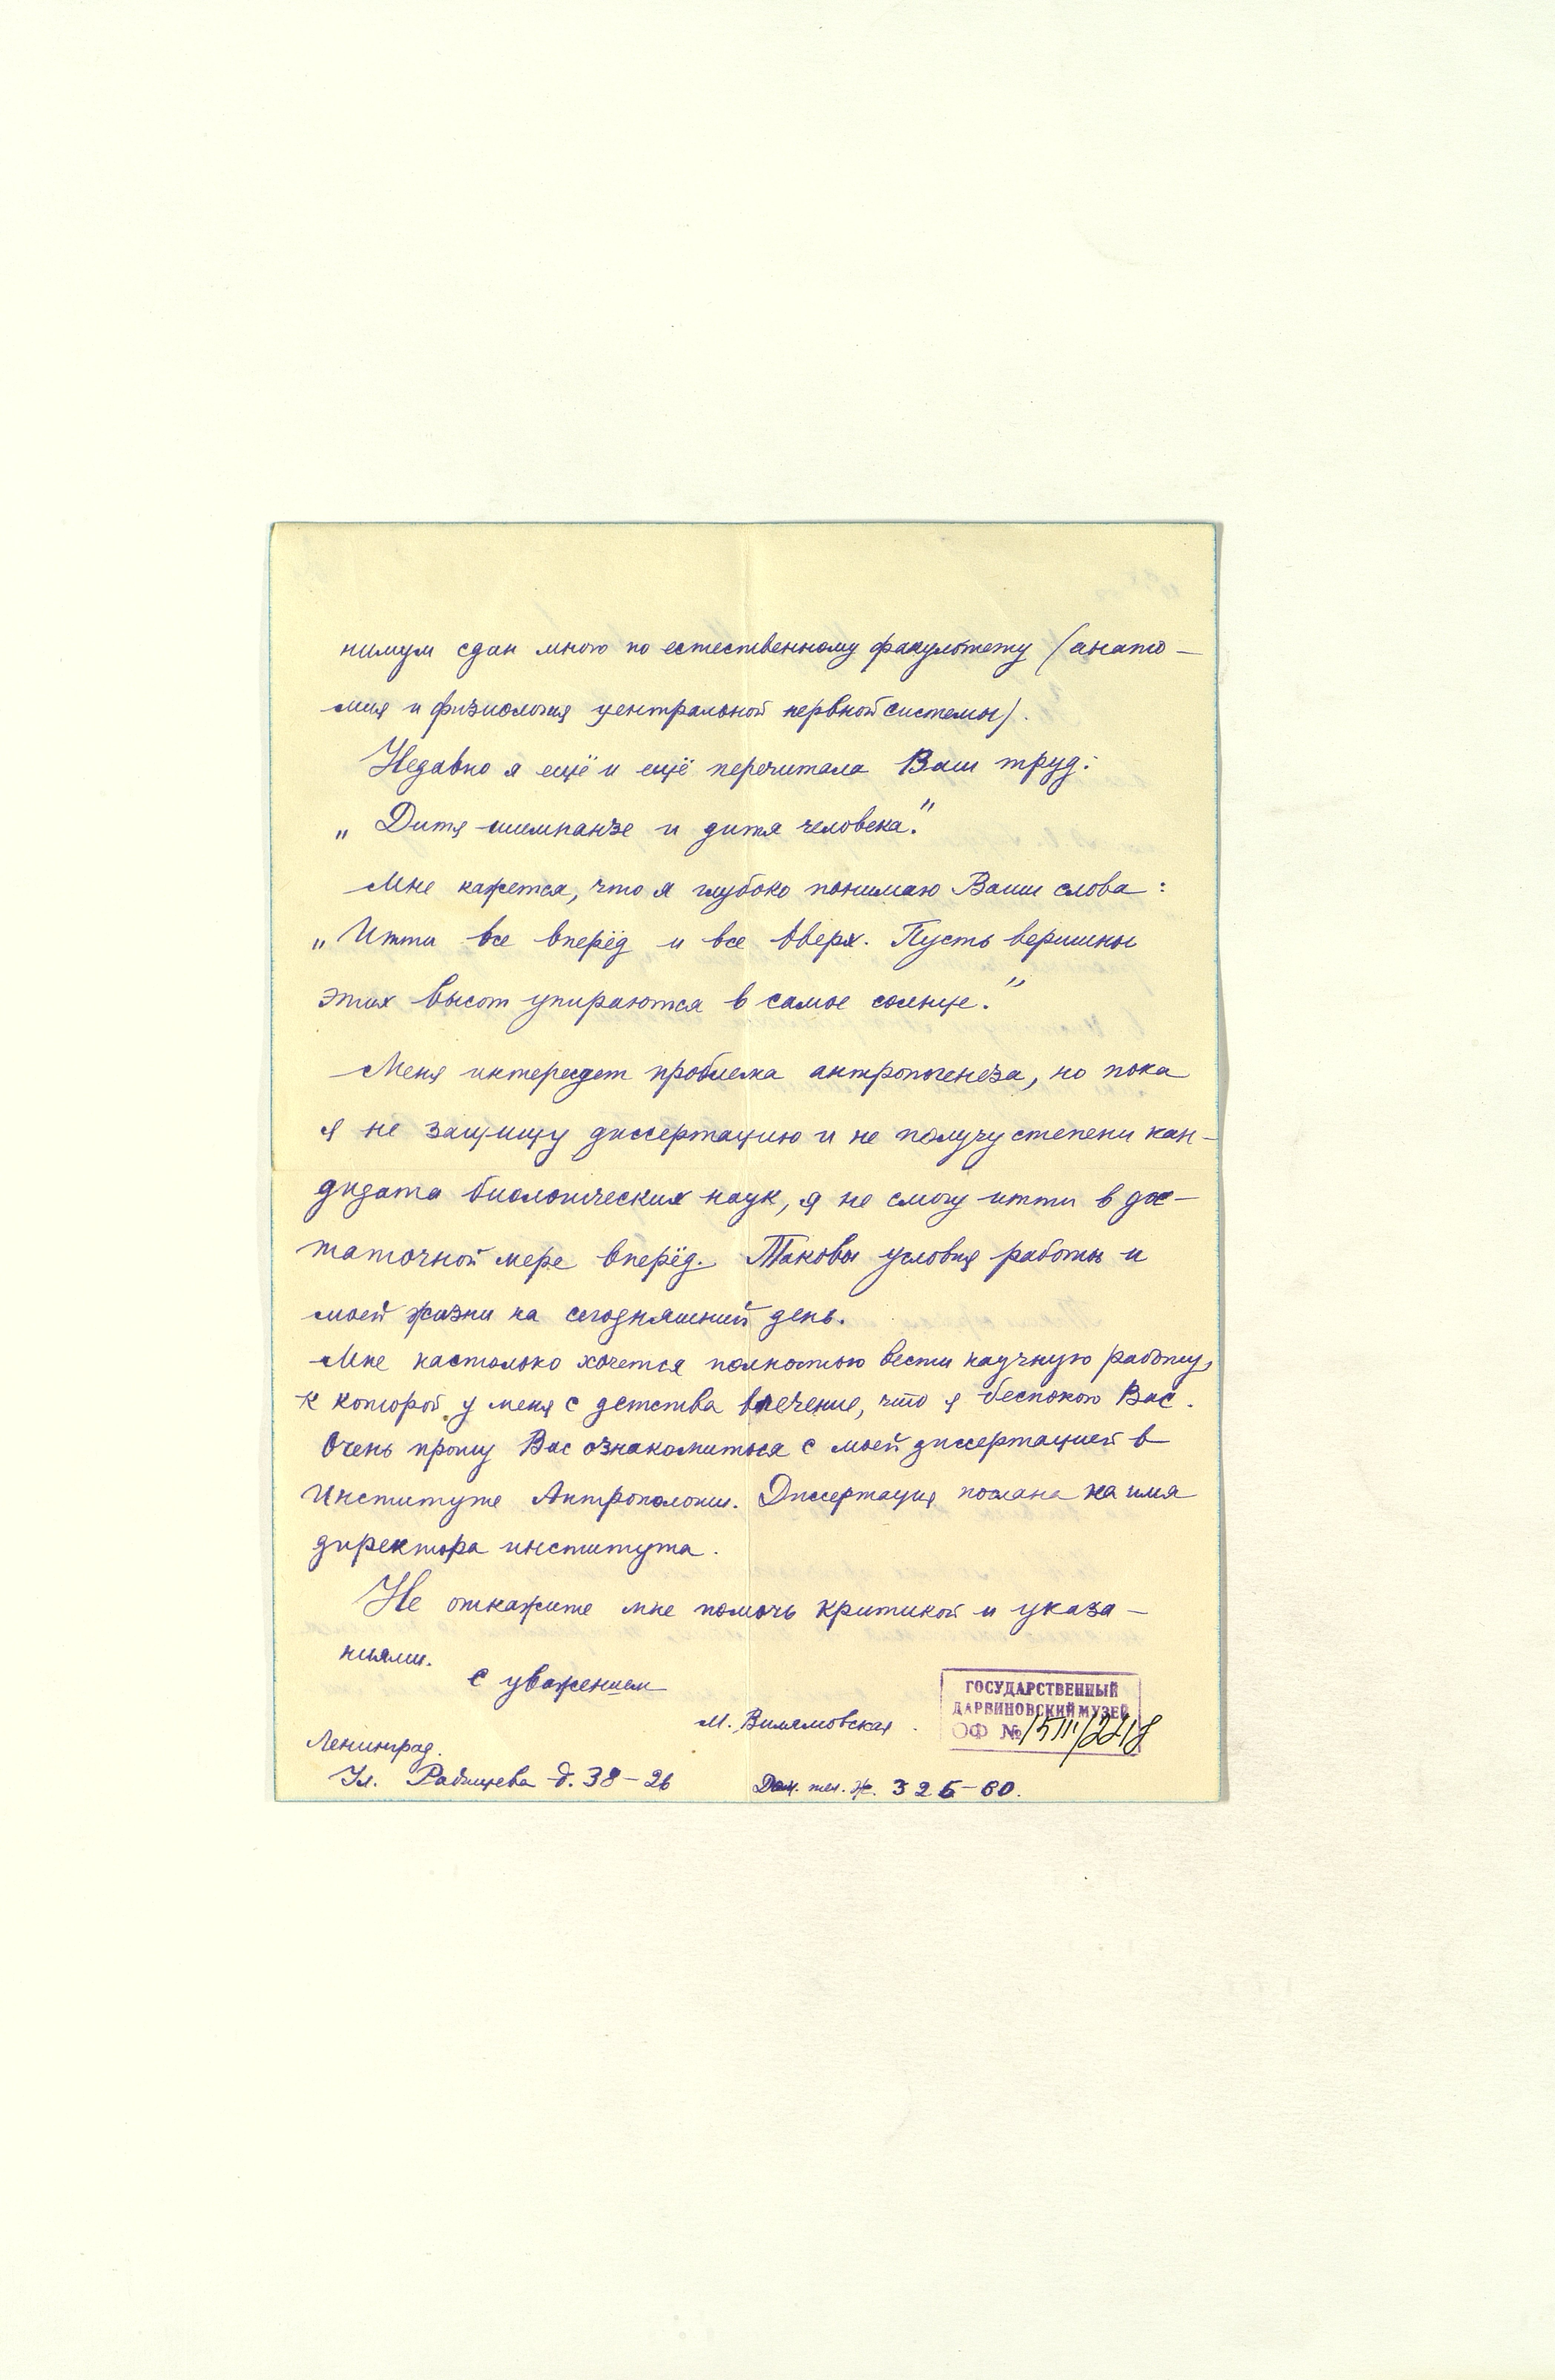 нимум сдан мною по естественному факультету (анато-
мия и физиология центральной нервной системы).
Недавно я ещё и ещё перечитала Ваш труд:
„Дитя шимпанзе и дитя человека."
Мне кажется, что я глубоко понимаю Ваши слова:
„Итти все вперёд и все вверх. Пусть вершины
этих высот упираются в самое солнце."
Меня интересует проблема антропогенеза, но пока
я не защищу диссертацию и не получу степени кан-
дидата биологических наук, я не смогу итти в дос-
таточной мере вперёд. Таковы условия работы и
моей жизни на сегодняшний день.
Мне настолько хочется полностью вести научную работу,
к которой у меня с детства влечение, что я беспокою Вас.
Очень прошу Вас ознакомиться с моей диссертацией в
Институте Антропологии. Диссертация послана на имя
директора института.
Не откажите мне помочь критикой и указа-
ниями.
С уважением
М. Вилямовская.
ГОСУДАРСТВЕННЫЙ
ДАРВИНОВСКИЙ МУЗЕЙ
ОФ №
Ленинград.
Ул. Радищева д. 38-26
Дом. тел. Ж. 326-60.